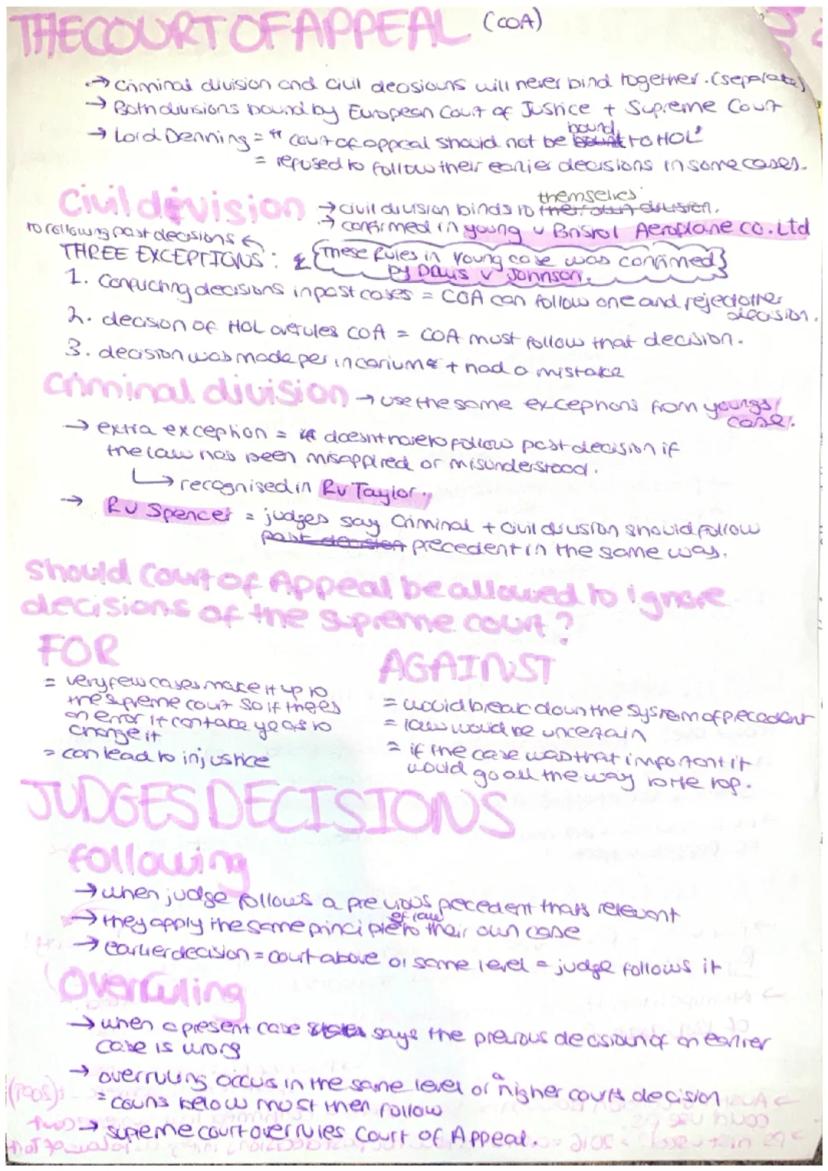 THE COURT OF APPEAL (COA)
→ Criminal division and civil decisions will never bind together. (separate)
→ Both divisions bound by European Court of Justice + Supreme Court
→ Lord Denning = "court of appeal should not be bound to HOL"
= refused to follow their earlier decisions in some cases.
Civil division → civil division binds to themselves their own division.
→ confirmed in young v Bristol Aeroplane co. Ltd
to following past decisions ←
THREE EXCEPTIONS: & {These rules in young case was confirmed}
by Davis v Johnson.
1. Conflicting decisions in past cases = COA can follow one and reject other decision.
2. decision of HOL overules COA = COA must follow that decision.
3. decision was made per incarium + had a mistake
Criminal division → use the same exceptions from youngs case.
→ extra exception = doesnt have to follow past decision if
the law has been misapplied or misunderstood.
↳ recognised in R v Taylor.
→ R v Spencer = judges say Criminal + Civil division should follow
past decision precedent in the same way.
Should Court of Appeal be allowed to ignore
decisions of the supreme court?
FOR
= very few cases make it up to
the supreme court so if theres
an error it can take years to
change it
= can lead to injustice
AGAINST
= would break down the system of precedent
= law would be uncertain
= if the case was that important it
would go all the way to the top.
JUDGES DECISIONS
Following
→ when judge follows a previous precedent thats relevant
→ they apply the same principle of law to their own case
→ earlier decision = court above or same level = judge follows it
Overruling
→ when a present case says the previous decision of an earlier
case is wrong
→ overruling occurs in the same level or a higher courts decision
= courts below most then follow
→ supreme court overrules Court of Appeal.